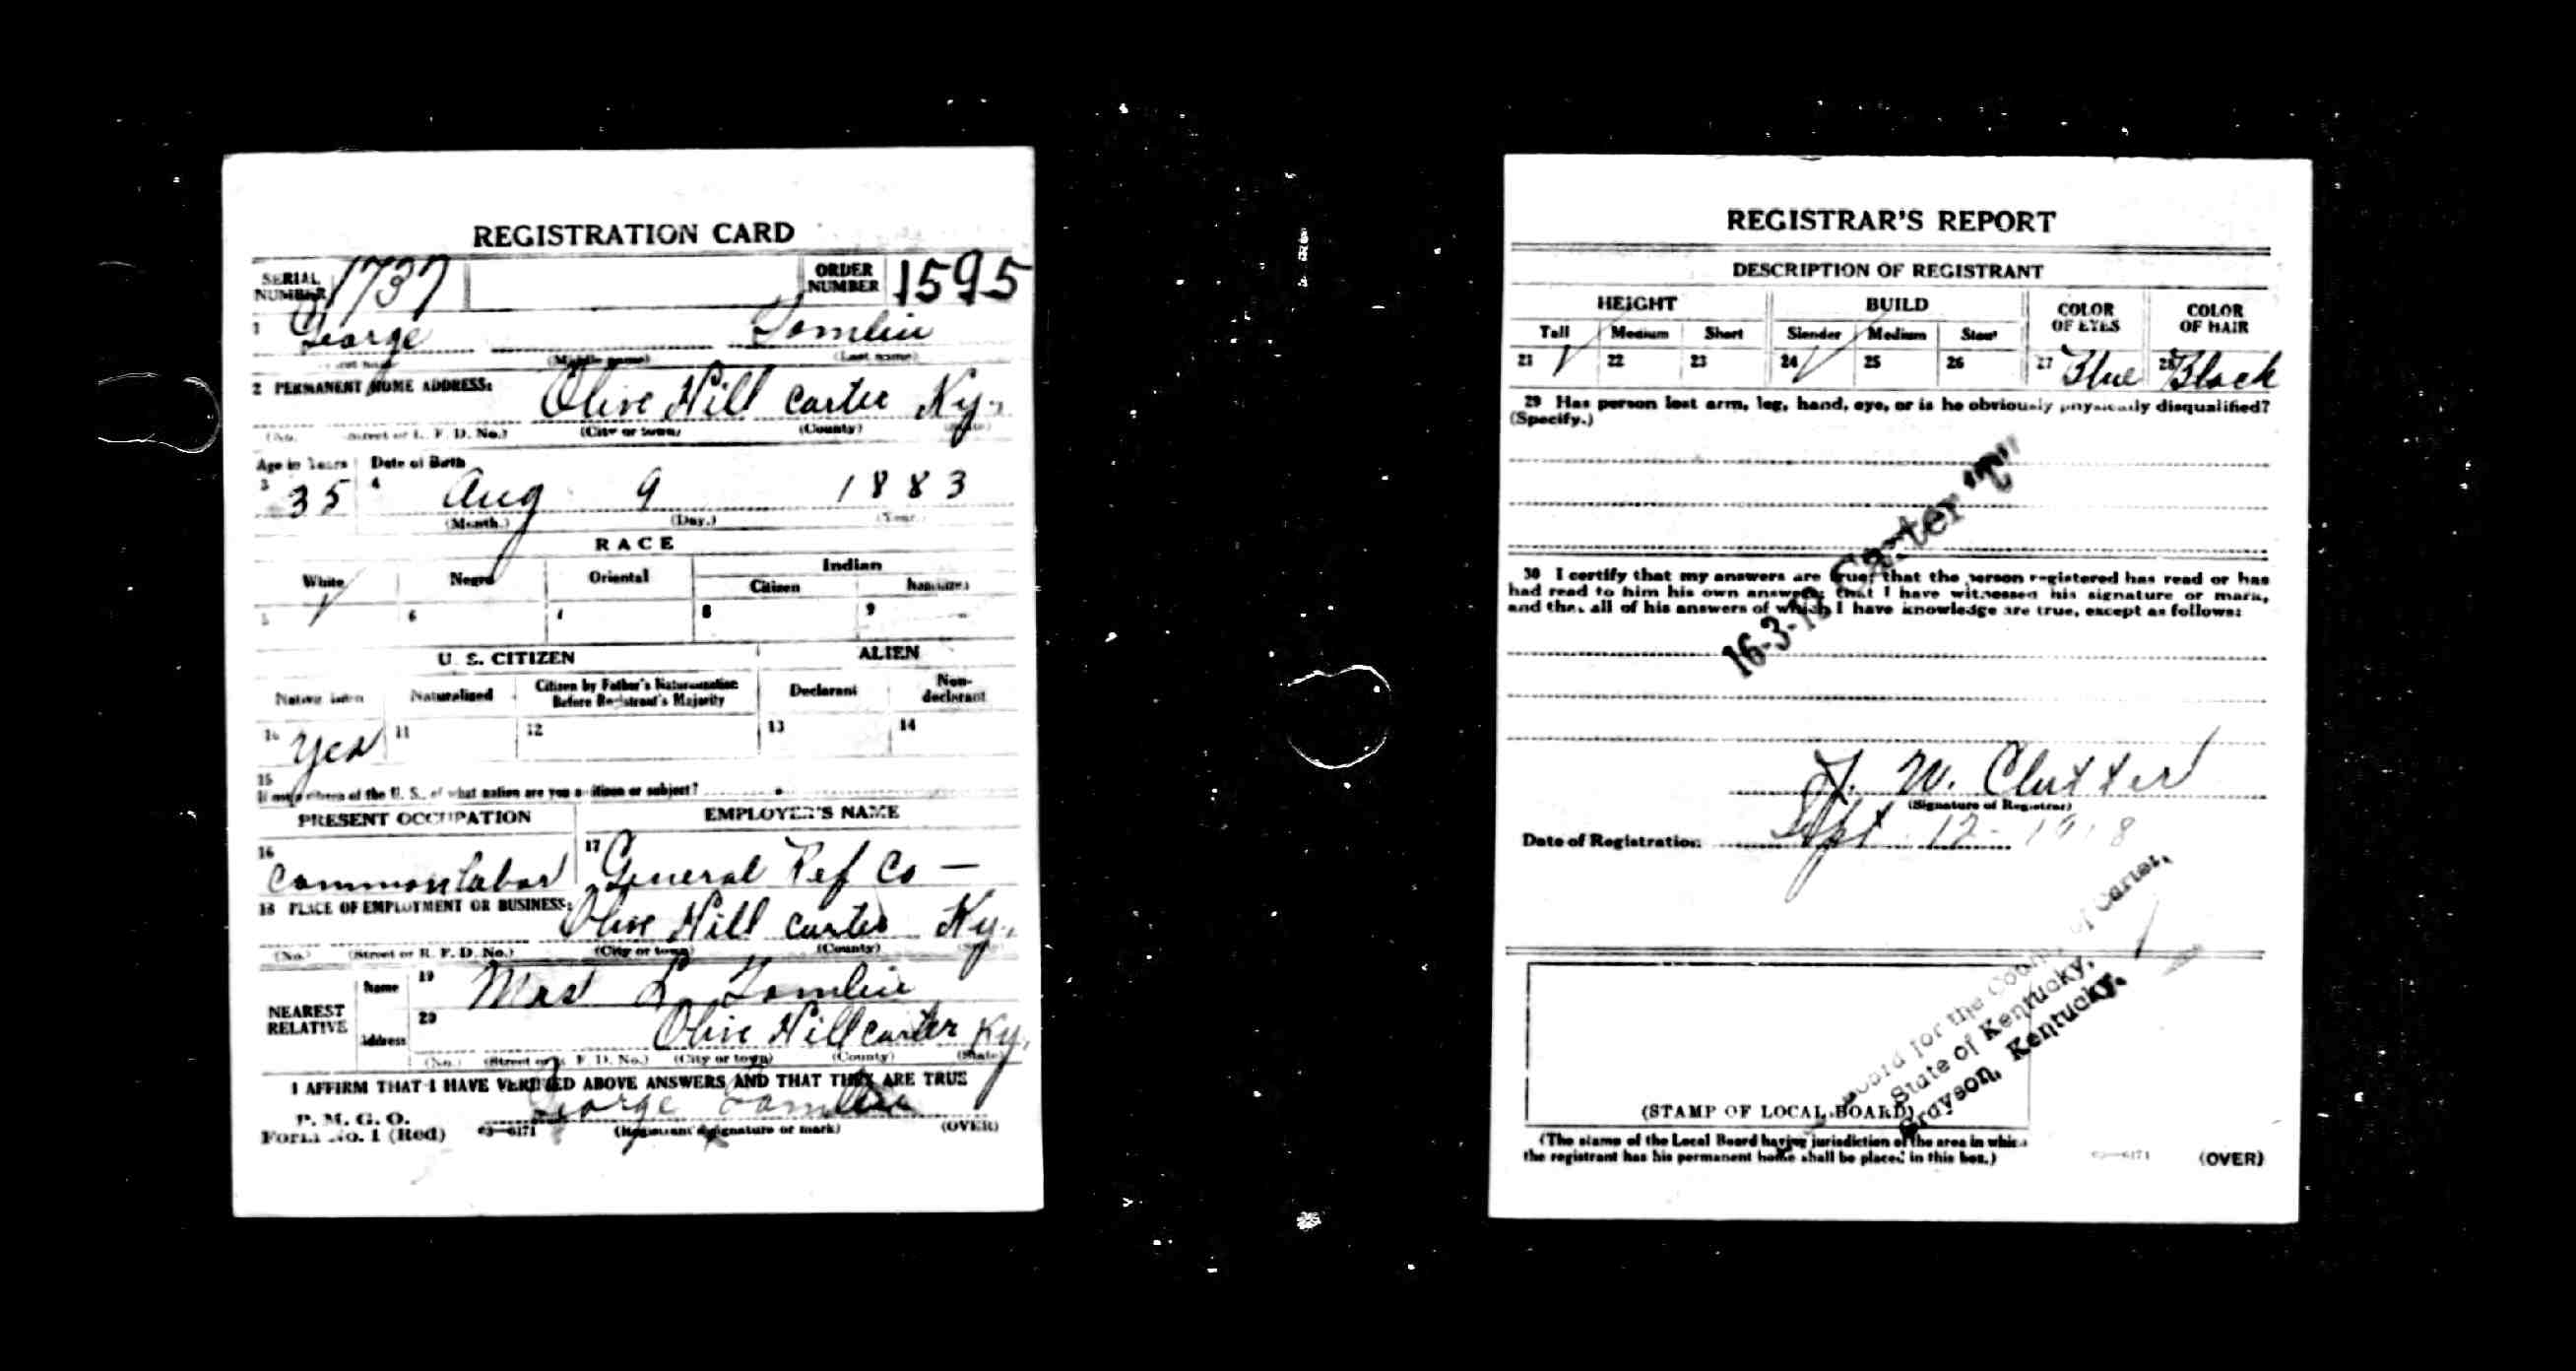 REGISTRATION CARD
SERIAL NUMBER 1737 ORDER NUMBER 1595
1 George Tomlin
(Middle name) (Last name)
2 PERMANENT HOME ADDRESS:
Olive Hill Carter Ky.
(No.) (Street or R. F. D. No.) (City or town) (County) (State)
Age in Years Date of Birth
3 35 4 Aug 9 1883
(Month.) (Day.) (Year.)
RACE
White Negro Oriental Indian
Citizen
5 6 7 8 9
U. S. CITIZEN ALIEN
Native born Naturalized Citizen by Father's Naturalization Before Registrant's Majority Declarant Non-declarant
10 Yes 11 12 13 14
15
If not a citizen of the U. S., of what nation are you a citizen or subject?
PRESENT OCCUPATION EMPLOYER'S NAME
16 Common labor 17 General Ref Co —
18 PLACE OF EMPLOYMENT OR BUSINESS:
Olive Hill Carter Ky.
(No.) (Street or R. F. D. No.) (City or town) (County) (State)
NEAREST RELATIVE
Name 19 Mrs L Tomlin
Address 20 Olive Hill Carter Ky.
(No.) (Street or R. F. D. No.) (City or town) (County) (State)
I AFFIRM THAT I HAVE VERIFIED ABOVE ANSWERS AND THAT THEY ARE TRUE
P. M. G. O.
Form No. 1 (Red) 03—6171 George Tomlin
(Registrant's signature or mark) (OVER)
REGISTRAR'S REPORT
DESCRIPTION OF REGISTRANT
HEIGHT BUILD COLOR OF EYES COLOR OF HAIR
Tall Medium Short Slender Medium Stout
21 22 23 24 25 26 27 Blue 28 Black
29 Has person lost arm, leg, hand, eye, or is he obviously physically disqualified?
(Specify.)
16-3-19 Carter "C"
30 I certify that my answers are true; that the person registered has read or has
had read to him his own answers; that I have witnessed his signature or mark,
and that all of his answers of which I have knowledge are true, except as follows:
W. Clutter
(Signature of Registrar)
Date of Registration Sept 12 - 1918
Board for the County of Carter,
State of Kentucky,
Grayson, Kentucky.
(STAMP OF LOCAL BOARD)
(The stamp of the Local Board having jurisdiction of the area in which
the registrant has his permanent home shall be placed in this box.)
03—6171 (OVER)